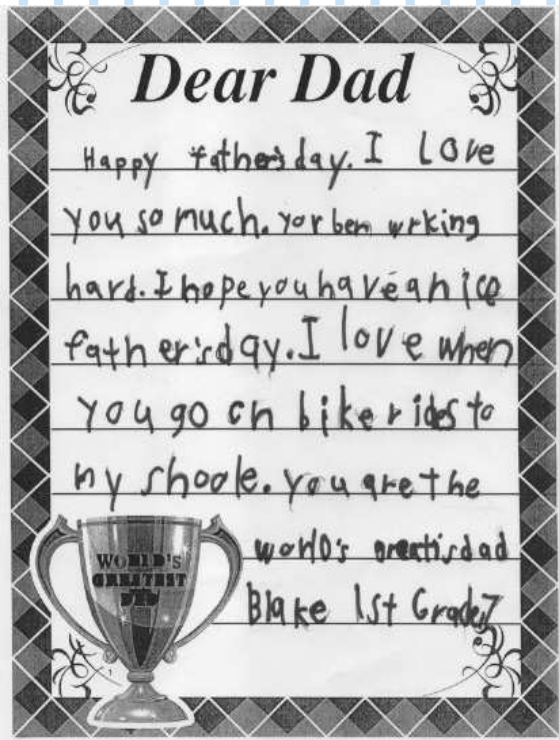 Dear Dad
Happy father's day. I love
you so much. Yor ben wrking
hard. I hope you have a nice
father's day. I love when
you go on bike rides to
my shoole. You are the
world's greatis dad
Blake 1st Grade 7
WORLD'S
GREATEST
DAD